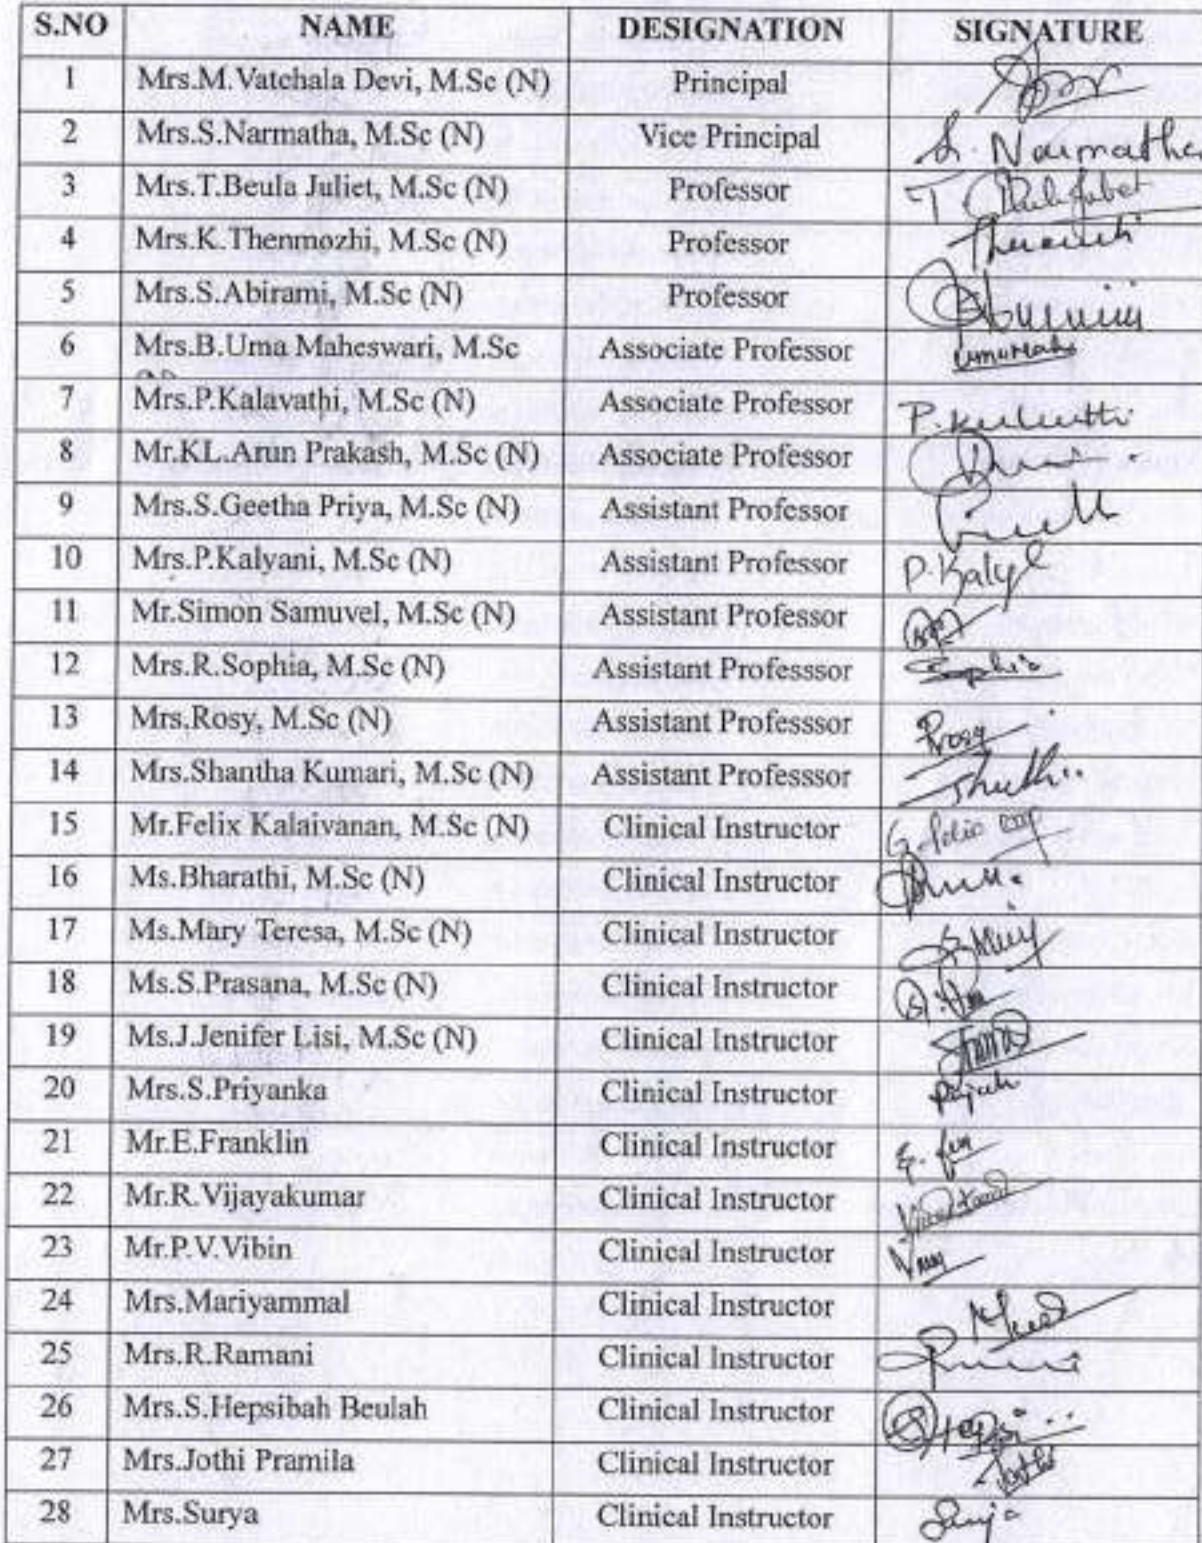 S.NO NAME DESIGNATION SIGNATURE
1 Mrs.M.Vatchala Devi, M.Sc (N) Principal
2 Mrs.S.Narmatha, M.Sc (N) Vice Principal S. Narmatha
3 Mrs.T.Beula Juliet, M.Sc (N) Professor
4 Mrs.K.Thenmozhi, M.Sc (N) Professor
5 Mrs.S.Abirami, M.Sc (N) Professor
6 Mrs.B.Uma Maheswari, M.Sc Associate Professor
7 Mrs.P.Kalavathi, M.Sc (N) Associate Professor
8 Mr.KL.Arun Prakash, M.Sc (N) Associate Professor
9 Mrs.S.Geetha Priya, M.Sc (N) Assistant Professor
10 Mrs.P.Kalyani, M.Sc (N) Assistant Professor
11 Mr.Simon Samuvel, M.Sc (N) Assistant Professor
12 Mrs.R.Sophia, M.Sc (N) Assistant Professsor Sophia
13 Mrs.Rosy, M.Sc (N) Assistant Professsor Rosy
14 Mrs.Shantha Kumari, M.Sc (N) Assistant Professsor
15 Mr.Felix Kalaivanan, M.Sc (N) Clinical Instructor
16 Ms.Bharathi, M.Sc (N) Clinical Instructor
17 Ms.Mary Teresa, M.Sc (N) Clinical Instructor
18 Ms.S.Prasana, M.Sc (N) Clinical Instructor
19 Ms.J.Jenifer Lisi, M.Sc (N) Clinical Instructor
20 Mrs.S.Priyanka Clinical Instructor
21 Mr.E.Franklin Clinical Instructor
22 Mr.R.Vijayakumar Clinical Instructor
23 Mr.P.V.Vibin Clinical Instructor
24 Mrs.Mariyammal Clinical Instructor
25 Mrs.R.Ramani Clinical Instructor
26 Mrs.S.Hepsibah Beulah Clinical Instructor
27 Mrs.Jothi Pramila Clinical Instructor
28 Mrs.Surya Clinical Instructor